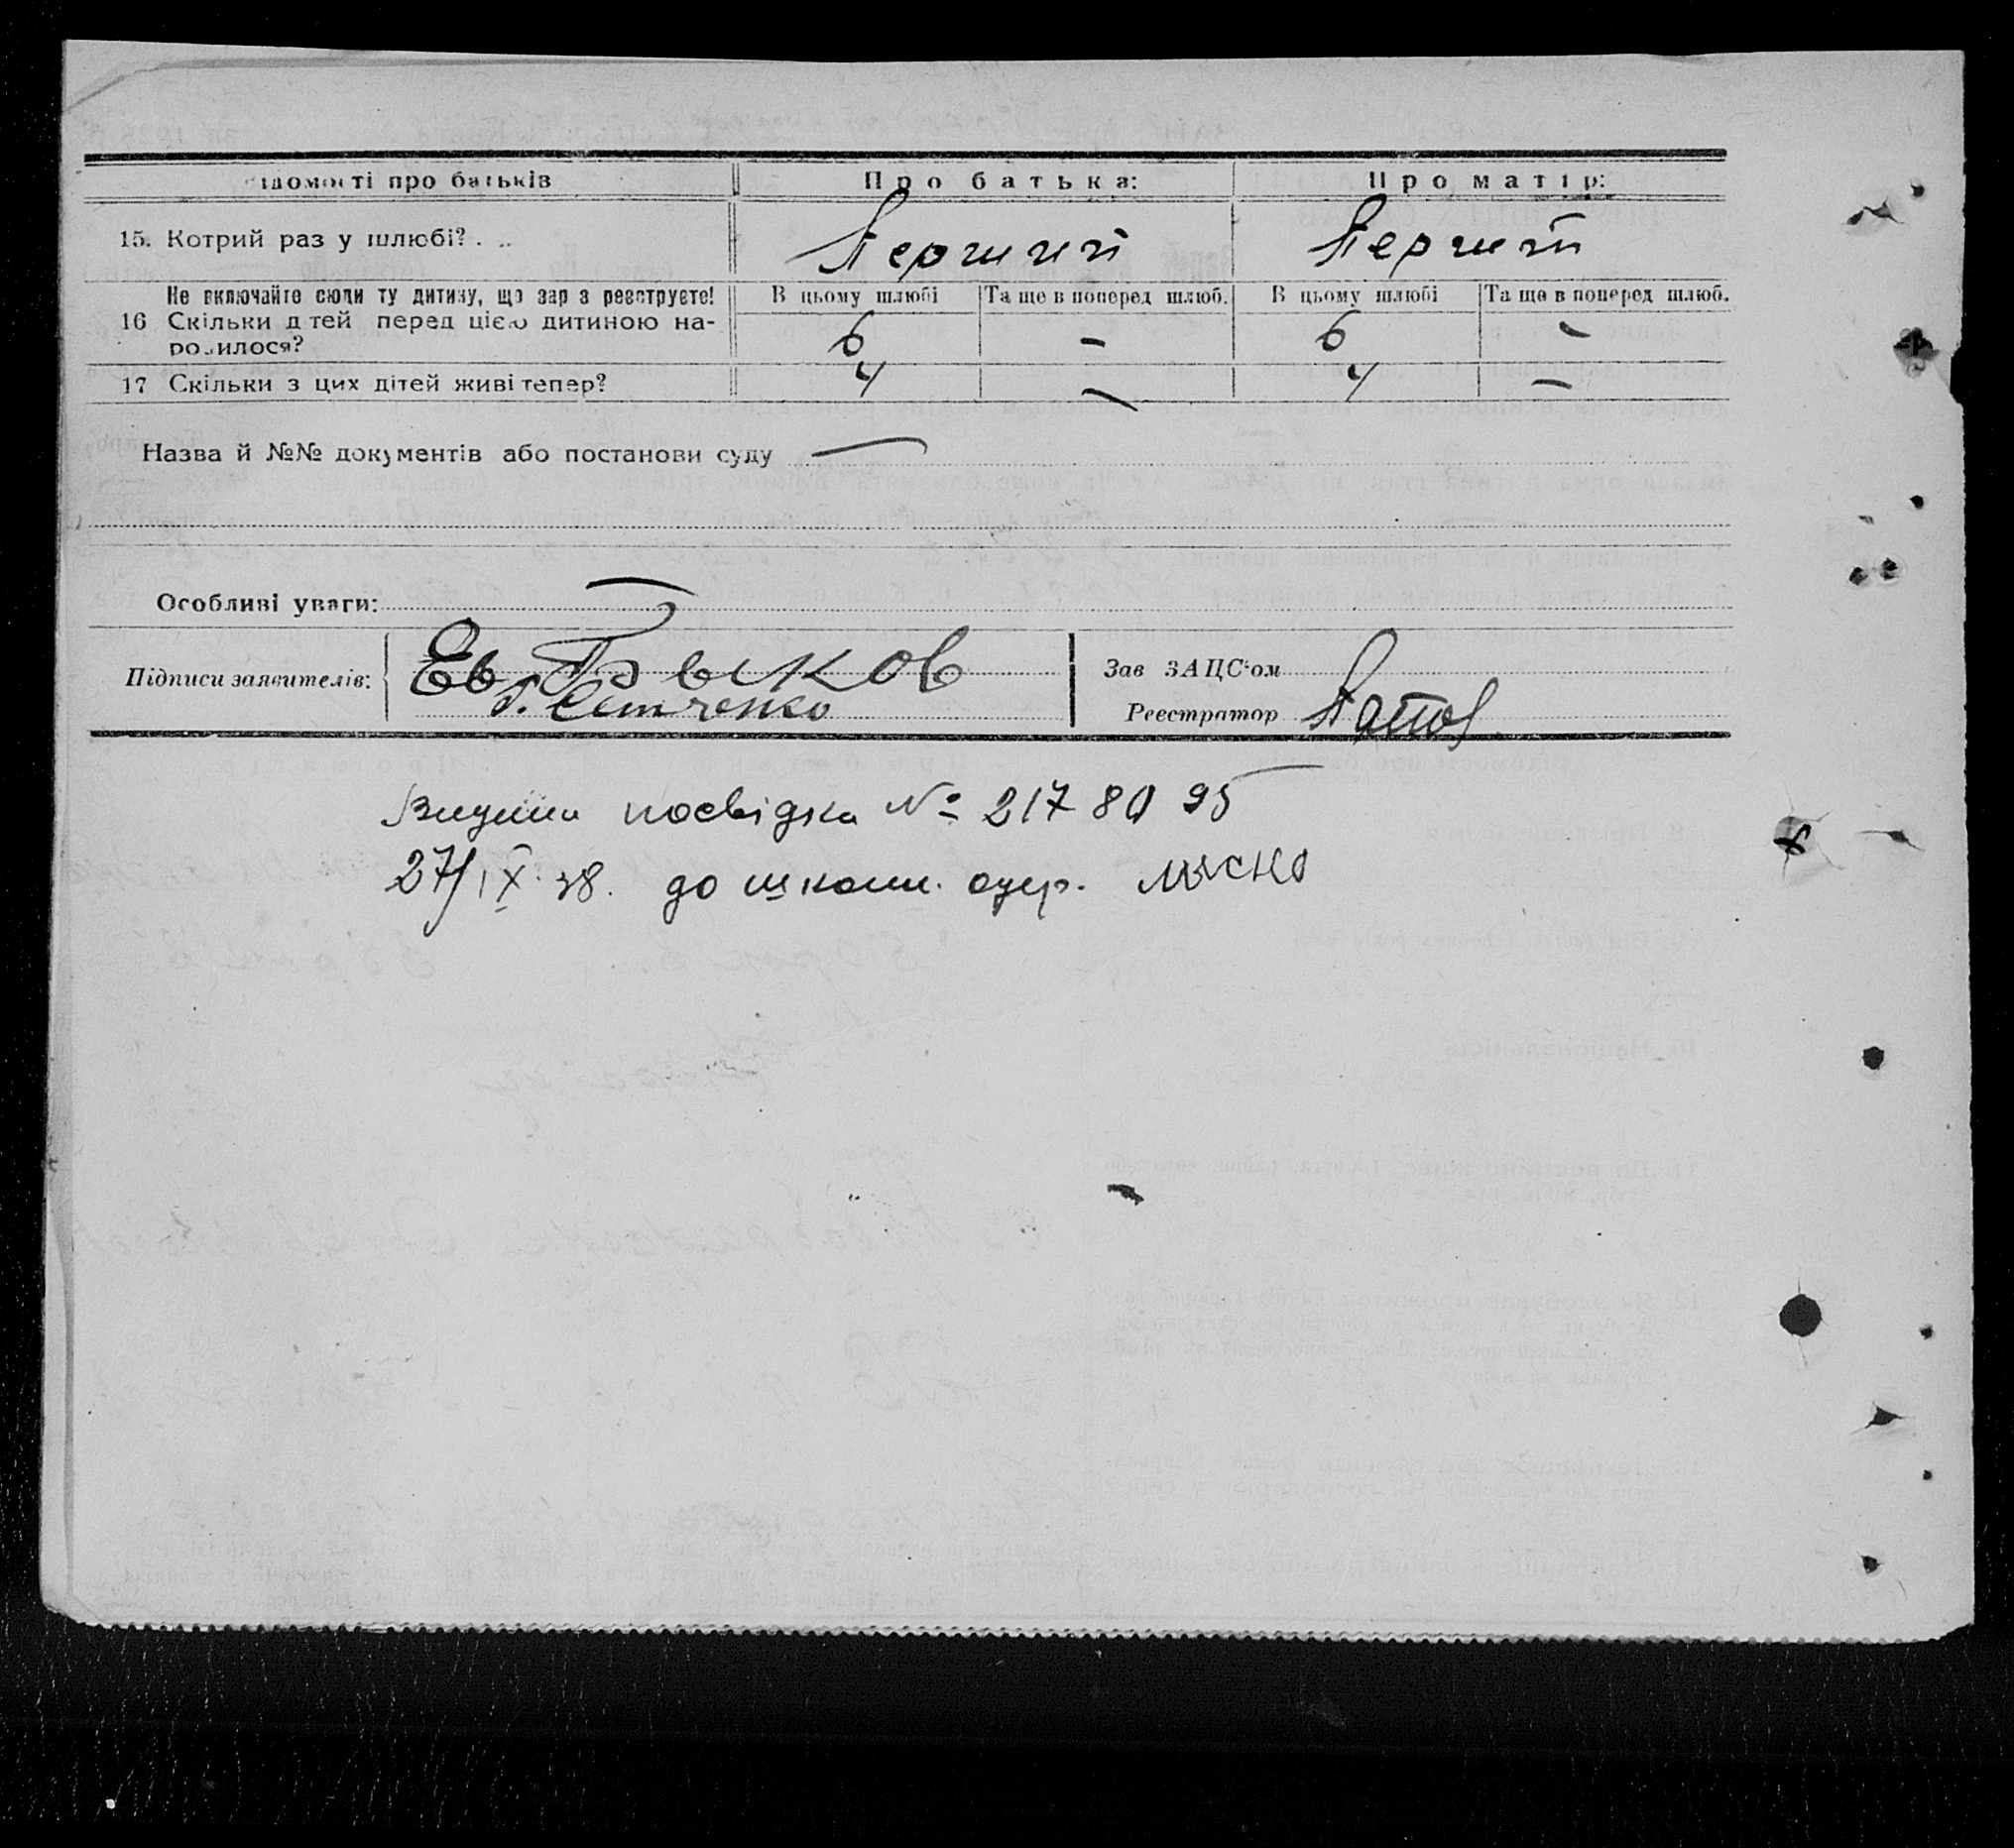 відомості про батьків Про батька: Про матір:
15. Котрий раз у шлюбі? . .. Перший Перший
Не включайте сюди ту дитину, що зар з реєструєте! В цьому шлюбі Та ще в поперед шлюб. В цьому шлюбі Та ще в поперед шлюб.
16 Скільки д тей перед цією дитиною на-
родилося? 6 – 6 –
17 Скільки з цих дітей живі тепер? 4 – 4 –
Назва й №№ документів або постанови суду —
Особливі уваги: —
Підписи заявителів: Ев. Быков Зав ЗАЦС'ом
Реєстратор
Видана посвідка № 2178095
27/IX.38. до школи. одер.